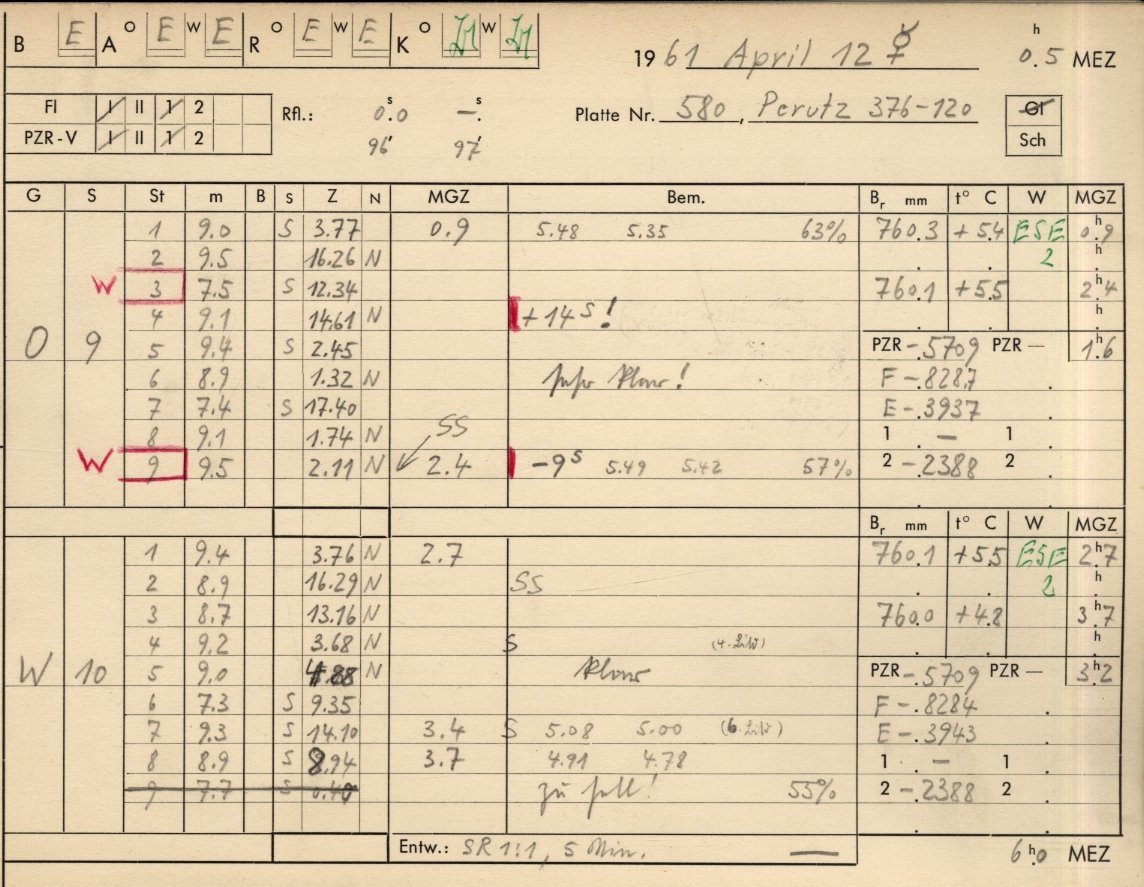 B E A O E W E R O E W E K O W
1961 April 12 ☿ 0.5 h MEZ
FI I II 1 2 Rfl.: 0.0 s —. s Platte Nr. 580, Perutz 376-120
PZR-V I II 1 2 96' 97' Sch
G S St m B S Z N MGZ Bem. Br mm t° C W MGZ
1 9.0 S 3.77 0.9 5.48 5.35 63% 760.3 +5.4 ESE 0.9 h
2 9.5 16.26 N 2 h
W 3 7.5 S 12.34 760.1 +5.5 2.4 h
4 9.1 14.61 N +14 s! h
O 9 5 9.4 S 2.45 PZR -.5709 PZR — 1.6 h
6 8.9 1.32 N sehr klar! F -.8287
7 7.4 S 17.40 E -.3937
8 9.1 1.74 N SS 1 . — 1 .
W 9 9.5 2.11 N 2.4 -9 s 5.49 5.42 57% 2 -.2388 2 .
Br mm t° C W MGZ
1 9.4 3.76 N 2.7 760.1 +5.5 ESE 2.7 h
2 8.9 16.29 N SS 2 h
3 8.7 13.16 N 760.0 +4.8 3.7 h
4 9.2 3.68 N S h
W 10 5 9.0 4.88 N klar PZR -.5709 PZR — 3.2 h
6 7.3 S 9.35 F -.8284
7 9.3 S 14.10 3.4 S 5.08 5.00 E -.3943
8 8.9 S 8.94 3.7 4.91 4.78 1 . — 1 .
9 7.7 S 0.40 zu hell! 55% 2 -.2388 2 .
Entw.: SR 1:1, 5 Min. — 6.0 h MEZ